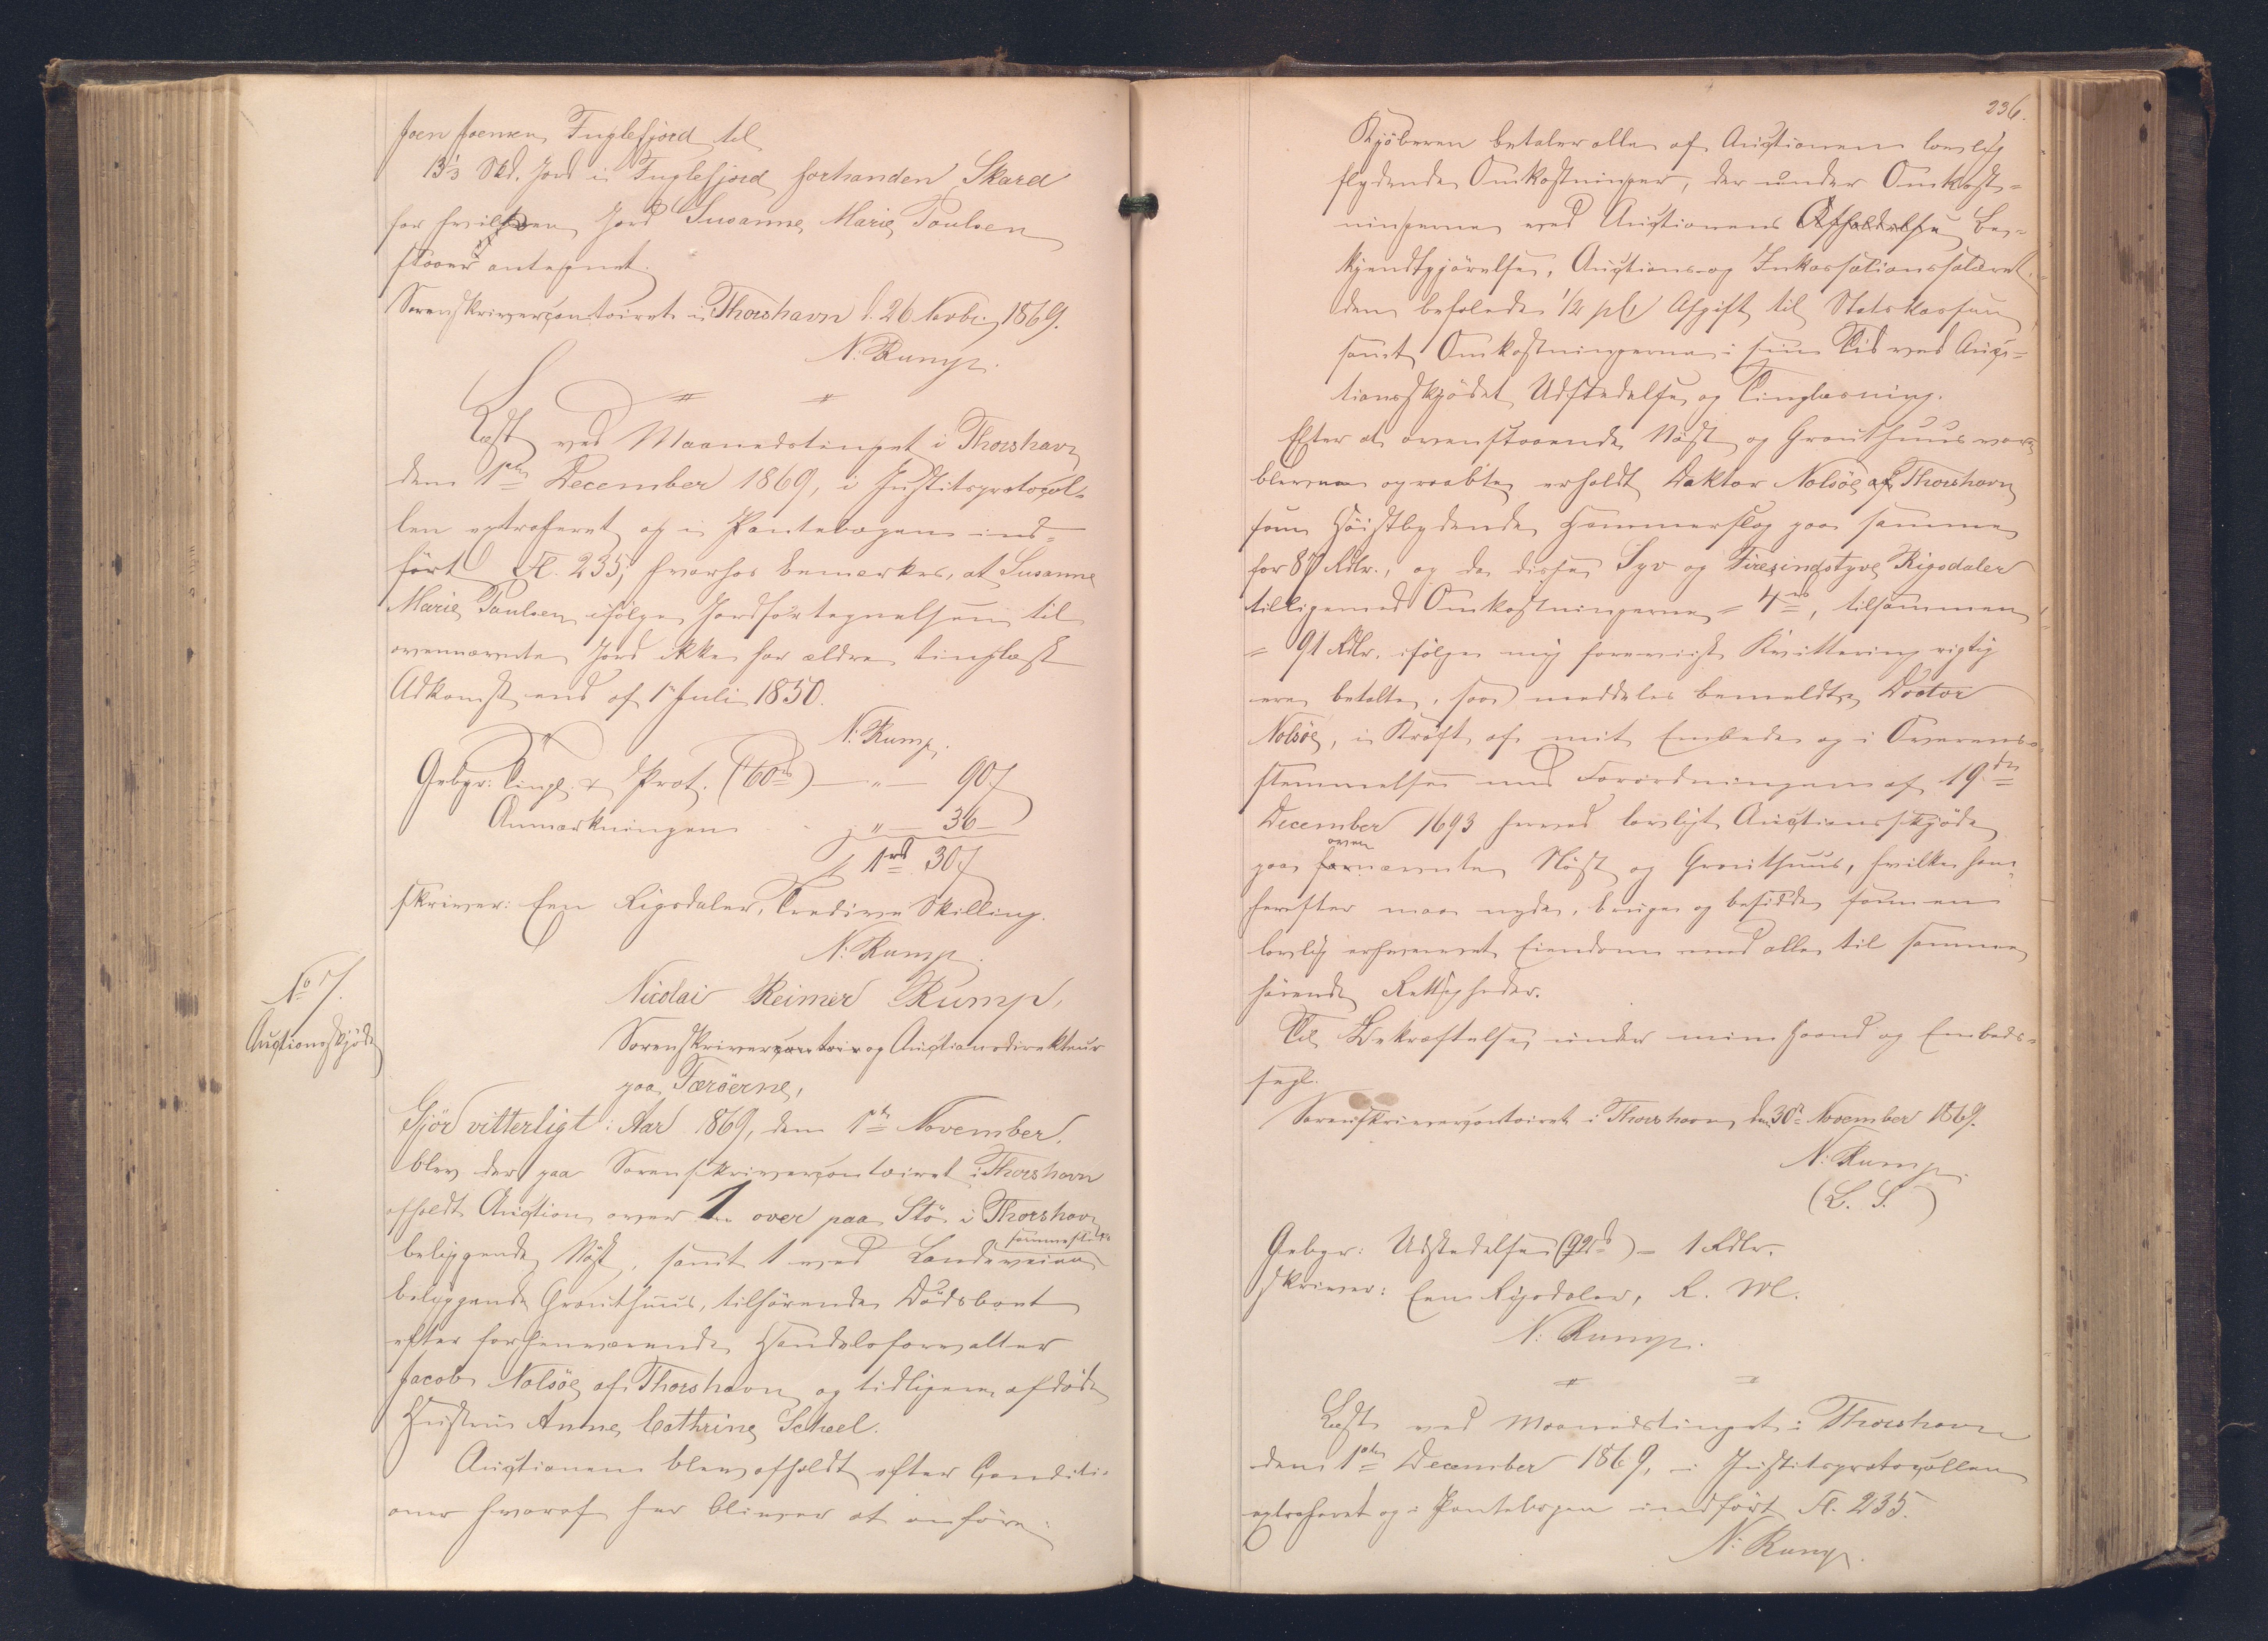 Joen Joensen Fuglefjord til
13⅓ Skd. Jord i Fuglefjord forhanden Skard
for hvilken Jord Susanne Marie Poulsen
staaer antegnet.
Sorenskrivercontoiret i Thorshavn d. 26 Novbr. 1869.
N. Rump.
Læst ved Maanedstinget i Thorshavn
den 1ste December 1869, i Justitsprotocol-
len extraheret og i Pantebogen ind-
ført Fl. 235, hvorhos bemærkes, at Susanne
Marie Poulsen ifølge Jordfortegnelsen til
ovennævnte Jord ikke har ældre tinglæst
Adkomst end af 1 Juli 1850.
N. Rump.
Gebyr: Tingl. & Prot. (60) — " — 90 ß
Anmærkningen " — 36 —
1 rd 30 ß
skriver: Een Rigsdaler, Tredive Skilling.
N. Rump.
No 7.
Auctionsskjøde
Nicolai Reimer Rump,
Sorenskriver og Auctionsdirekteur
paa Færöerne,
Gjør vitterligt: Aar 1869, den 1ste November,
blev der paa Sorenskrivercontoiret i Thorshavn
afholdt Auction over 1 over paa Stö i Thorshavn
beliggende Nøst, samt 1 ved Landeveien sammesteds
beliggende Grouthuus, tilhørende Dødsboet
efter forhenværende Handelsforvalter
Jacob Nolsöe af Thorshavn og tidligere afdøde
Hustru Anne Cathrine Scheel.
Auctionen blev afholdt efter Conditi-
oner hvoraf her bliver at anføre:
236.
Kjøberen betaler alle af Auctionen lovlig
flydende Omkostninger, der under Omkost-
ningerne ved Auctionens Afholdelse Be-
kjendtgjørelse, Auctions- og Inkassationssalæret,
den befalede ½ pCt Afgift til Statskassen
samt Omkostningerne i sin Tid ved Auc-
tionsskjødet Udstedelse og Tinglæsning.
Efter at ovenstaaende Nøst og Grouthuus vare
blevne opraabte erholdt Doktor Nolsöe af Thorshavn
som Høistbydende Hammerslag paa samme
for 87 Rdlr., og da disse Syv og Firesindstyve Rigsdaler
tilligemed Omkostningerne = 4 rd, tilsammen
= 91 Rdlr. ifølge mig foreviist Kvittering rigtig
ere betalte, saa meddeles bemeldte Doctor
Nolsöe, i Kraft af mit Embede og i Overens-
stemmelse med Forordningen af 19de
December 1693 herved lovligt Auctionsskjøde
paa ovennævnte Nøst og Grouthuus, hvilke han
herefter maa nyde, bruge og besidde som en
lovlig erhvervet Eiendom med alle til samme
hørende Rettigheder.
Til Bekræftelse under min Haand og Embeds-
segl.
Sorenskrivercontoiret i Thorshavn, den 30te November 1869.
N. Rump.
(L. S.)
Gebyr: Udstedelsen (92) — 1 Rdlr.
skriver: Een Rigsdaler, R. M.
N. Rump.
Læst ved Maanedstinget i Thorshavn
den 1ste December 1869, i Justitsprotocollen
extraheret og i Pantebogen indført Fl. 235.
N. Rump.